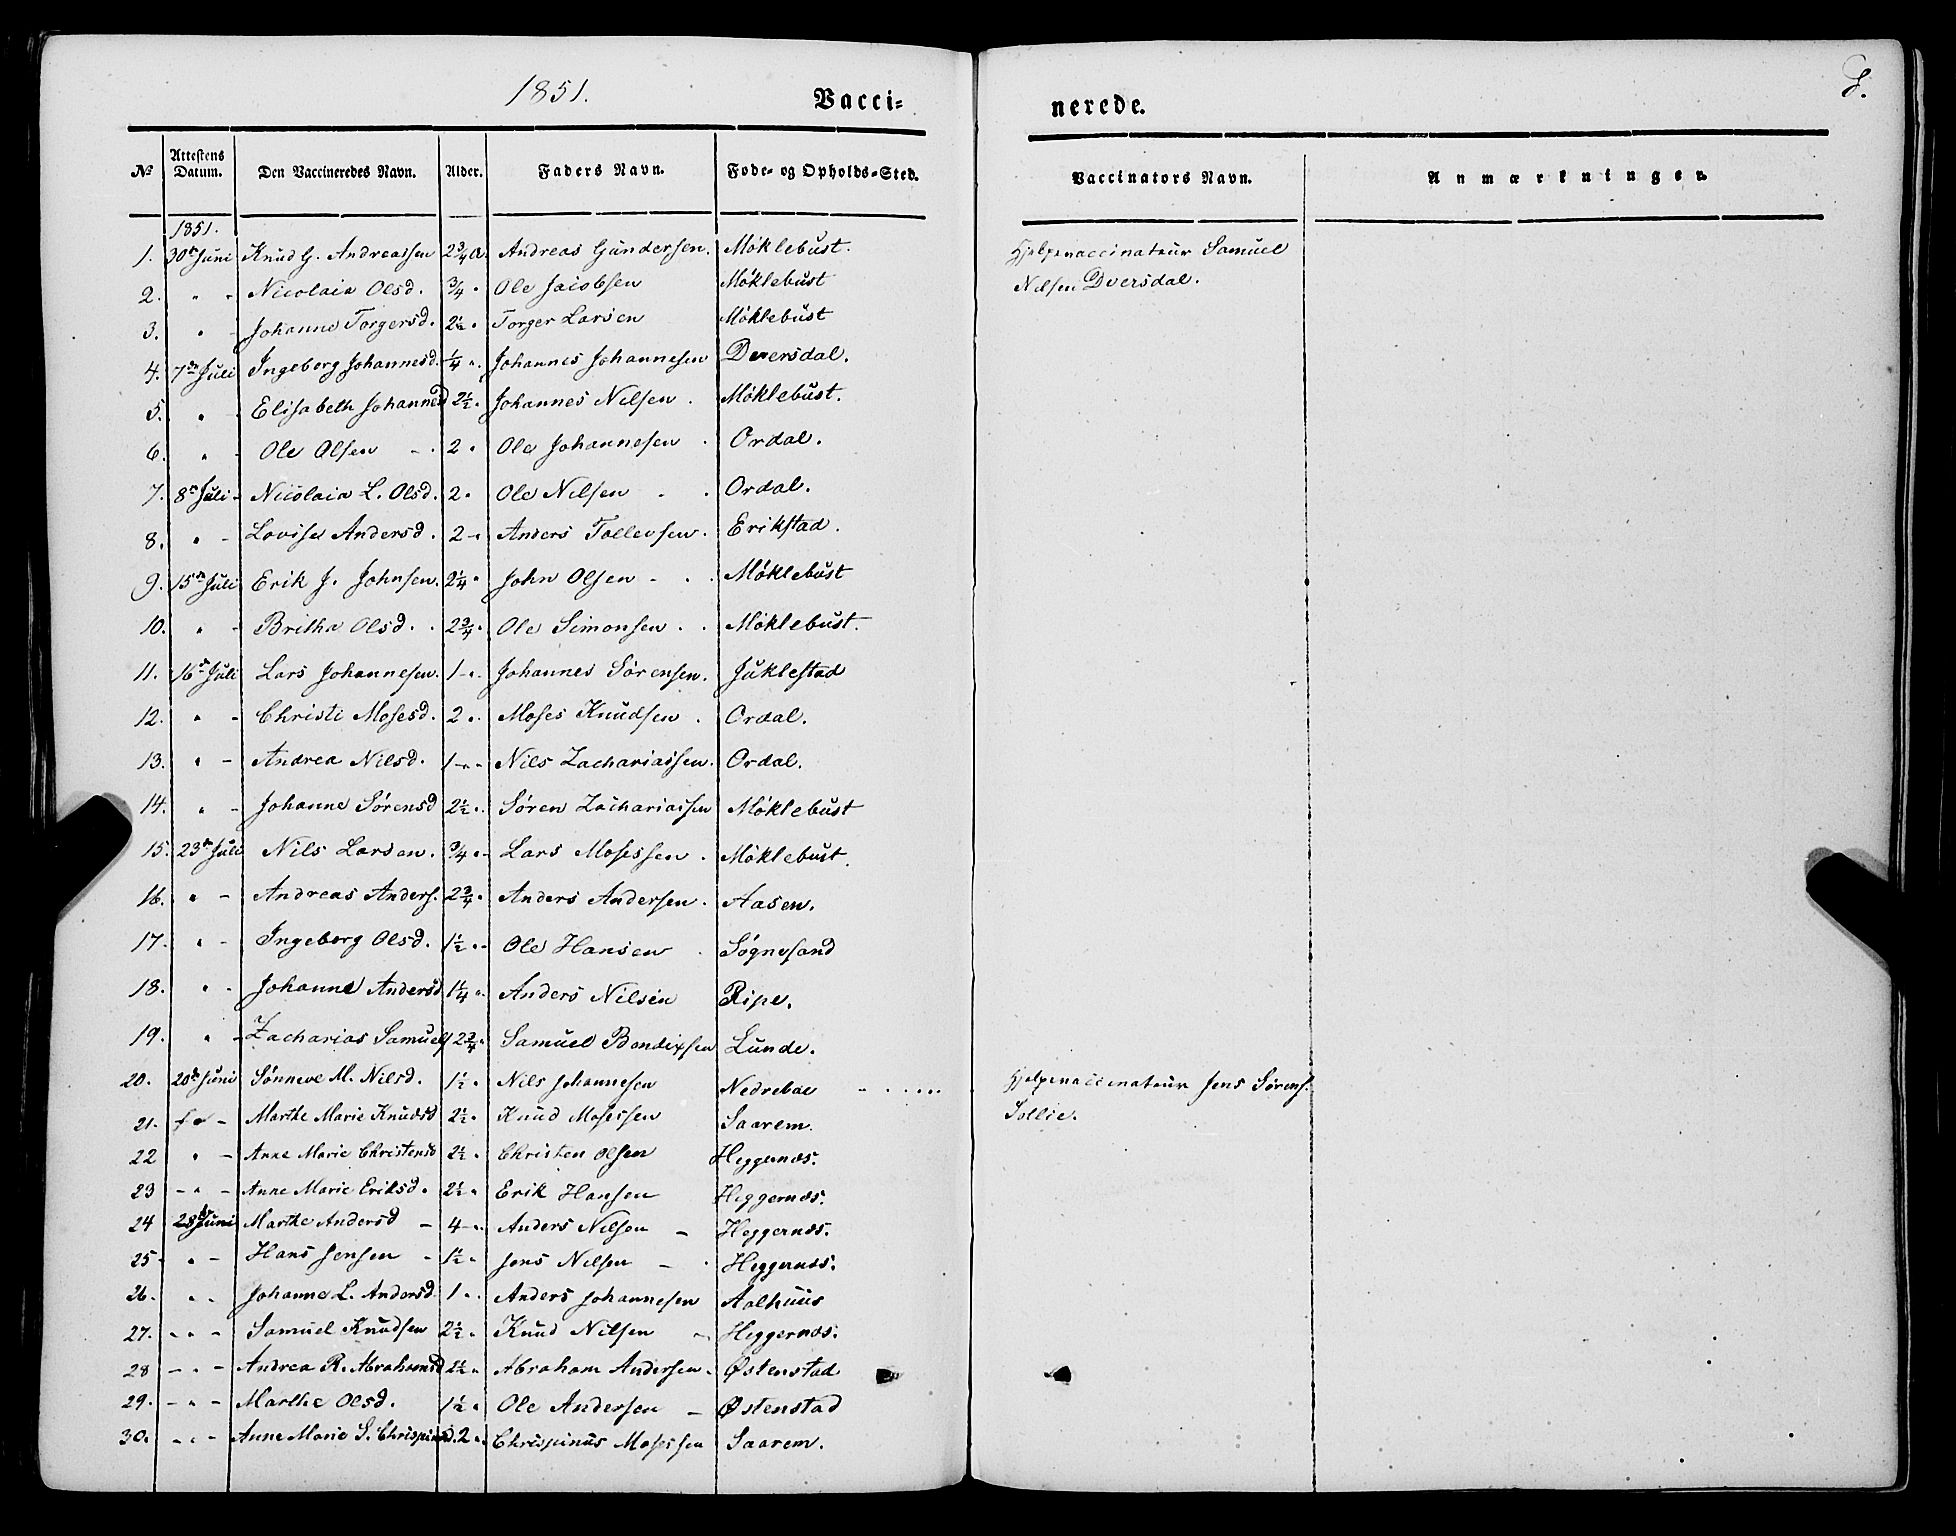 1851.
Vacci-
nerede.
No
Attestens Datum.
Den Vaccineredes Navn.
Alder.
Faders Navn.
Føde- og Opholds-Sted.
Vaccinators Navn.
Anmærkninger.
1851.
1. 30te Juni Knud G. Andreassen 2 3/4 a. Andreas Gundersen. Møklebust. Hjelpevaccinateur Samuel
2. " - Nicolaia Olsd. 3/4 " Ole Jacobsen Møklebust Nilsen Dversdal.
3. " - Johanne Torgersd. 2 1/2 " Torger Larsen Møklebust
4. 7de Juli Ingeborg Johannesd. 1/4 " Johannes Johannesen Dversdal.
5. " - Elisabeth Johannesd 2 1/2 " Johannes Nilsen . Møklebust.
6. " - Ole Olsen - . 2 " Ole Johannesen . Ordal.
7. 8de Juli - Nicolaia L. Olsd. 2 " Ole Nilsen . . Ordal.
8. " - Lovise Andersd . 2 - " Anders Tollevsen . Erikstad .
9. 15de Juli Erik J. Johnsen. 2 1/4 " John Olsen - . . Møklebust
10. " - Britha Olsd . . 2 3/4 " Ole Simonsen . . Møklebust.
11. 16de Juli Lars Johannesen. 1 - " Johannes Sørensen. Juklestad
12. " - Christi Mosesd. 2 " Moses Knudsen . Ordal.
13. " - Andrea Nilsd. 1 - " Nils Zachariassen. Ordal.
14. " - Johanne Sørensd 2 1/2 " Søren Zachariassen Møklebust
15. 23de Juli Nils Larsen. 3/4 " Lars Mosessen . Møklebust.
16. " - Andreas Anders. 2 3/4 " Anders Andersen . Aasen.
17. " - Ingeborg Olsd. 1 1/2 " Ole Hansen . Søgnesand
18. " - Johanne Andersd 1 1/4 " Anders Nilsen Ripe.
19. " - Zacharias Samuels 2 3/4 " Samuel Bendixsen Lunde.
20. 20de Juni Sønneve M. Nilsd. 1 1/2 " Nils Johannesen Nedrebøe - ..... Hjelpevaccinateur Jens Sørens.
21. - Marthe Marie Knudsd 2 1/2 " Knud Mosessen Saarem. Sollie.
22 " - Anne Marie Christensd 2 1/2 " Christen Olsen Heggernæs.
23 - " - Anne Marie Eriksd. 2 1/2 " Erik Hansen Heggernæs.
24 28de Juni Marthe Andersd - 4 - " Anders Nilsen - Heggernæs.
25. " - Hans Jensen - 1 1/2 " Jens Nilsen - . Heggernæs.
26. " - Johanne L. Andersd 1 " Anders Johannesen Aalhuus
27. - " - Samuel Knudsen 2 1/2 " Knud Nilsen - Heggernæs.
28 - " - Andrea R. Abrahamsd 2 1/2 " Abraham Andersen . Østenstad
29. - " - Marthe Olsd. 1 1/2 " Ole Andersen - Østenstad
30. - " - Anne Marie S. Chrispinusd. 2 " Chrispinus Mosessen Saarem.